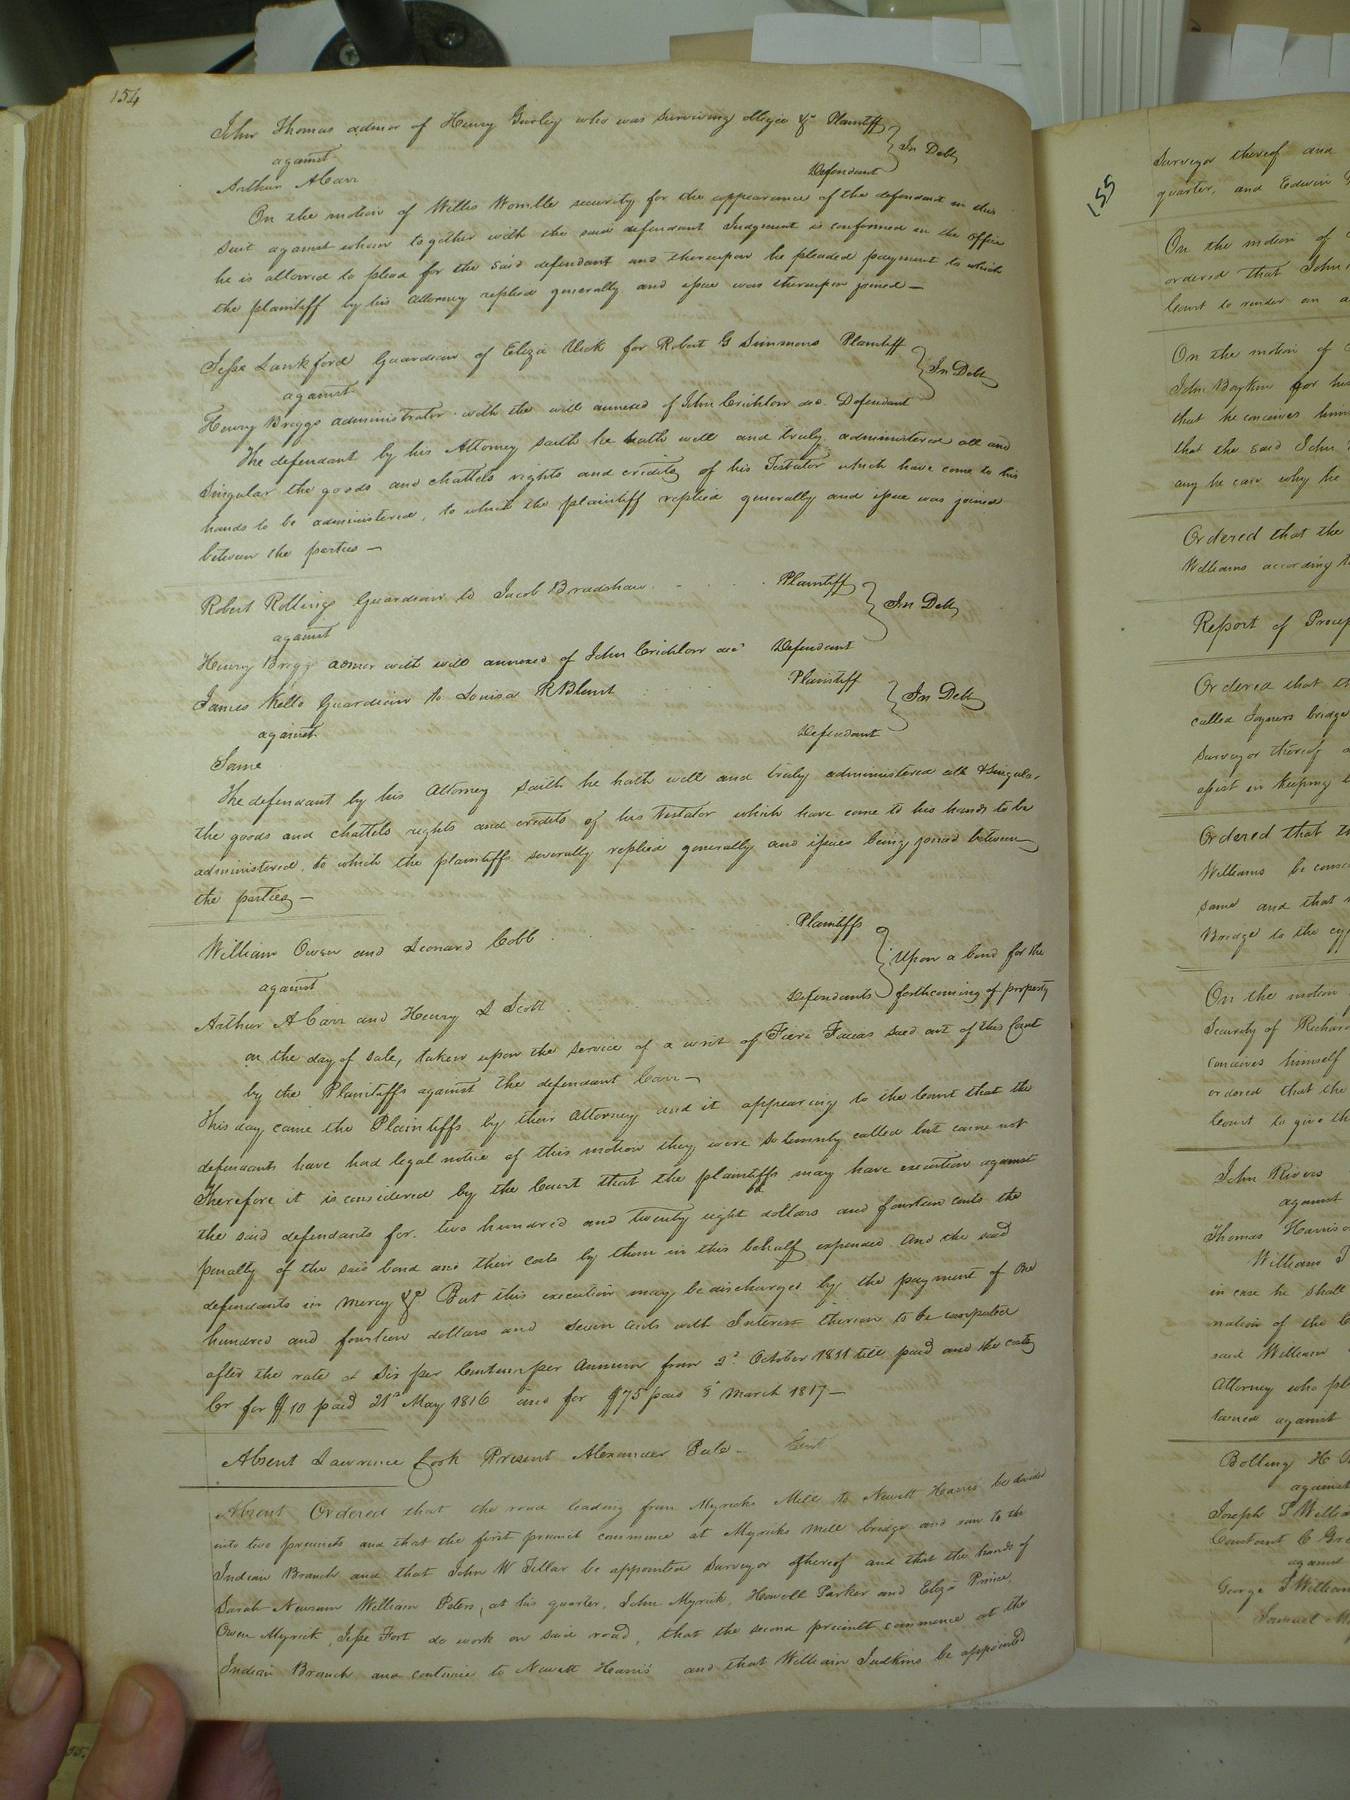 154
John Thomas admor of Henry Gurley who was surviving obligee &c Plaintiff
against In Debt
Arthur A Carr Defendant
On the motion of Willis Womble security for the appearance of the defendant in this
suit against whom together with the said defendant Judgment is confirmed in the office
he is allowed to plead for the said defendant and thereupon he pleaded payment to which
the plaintiff by his Attorney replied generally and issue was thereupon joined —
Jesse Lankford Guardian of Eliza Vick for Robert G Simmons Plaintiff
against In Debt
Henry Briggs administrator with the will annexed of John Crichlow dec. Defendant
The defendant by his Attorney saith he hath well and truly administered all and
Singular the goods and chattels rights and credits of his Testator which have come to his
hands to be administered, to which the plaintiff replied generally and issue was joined
between the parties —
Robert Rollings Guardian to Jacob Bradshaw Plaintiff
against In Debt
Henry Briggs admor with will annexed of John Crichlow dec Defendant
James Kello Guardian to Louisa R Blunt Plaintiff
against In Debt
Same Defendant
The defendant by his Attorney saith he hath well and truly administered all & Singular
the goods and chattels rights and credits of his Testator which have come to his hands to be
administered, to which the plaintiffs severally replied generally and issues being joined between
the parties —
William Owen and Leonard Cobb Plaintiffs
against Upon a bond for the
Arthur A Carr and Henry L Scott Defendants forthcoming of property
on the day of sale, taken upon the service of a writ of Fieri Facias sued out of this Court
by the Plaintiffs against the defendant Carr —
This day came the Plaintiffs by their Attorney and it appearing to the Court that the
defendants have had legal notice of this motion they were solemnly called but came not
Therefore it is considered by the Court that the plaintiffs may have execution against
the said defendants for two hundred and twenty eight dollars and fourteen cents the
penalty of the said bond and their costs by them in this behalf expended. And the said
defendants in mercy &c But this execution may be discharged by the payment of One
hundred and fourteen dollars and seven cents with Interest thereon to be computed
after the rate of Six per Centum per Annum from 2d October 1811 till paid and the costs
Cr for $10 paid 21st May 1816 and for $75 paid 8 March 1817 —
Absent Lawrence Cook Present Alexander Pele — Gent
Absent Ordered that the road leading from Myricks Mill to Newitt Harris be divided
into two precincts and that the first precinct commence at Myricks Mill bridge and run to the
Indian Branch and that John W Tillar be appointed Surveyor thereof and that the hands of
Sarah Newsum William Peters, at his quarter, John Myrick, Howell Parker and Eliza Prince,
Owen Myrick, Jesse Fort do work on said road, that the second precinct commence at the
Indian Branch and continue to Newitt Harris and that William Judkins be appointed
155
Surveyor thereof and
quarter, and Edwin
On the motion of
ordered that John
Court to render an a
On the motion of
John Boykin for his
that he conceives him
that the said John
any he can why he
Ordered that the
Williams according to
Report of Proces
Ordered that th
called Joyners bridge
Surveyor thereof
assist in keeping
Ordered that th
Williams be conse
same and that
Bridge to the
On the motion
Security of Richard
conceives himself
ordered that the
Court to give th
John Rivers
against
Thomas Harris
William T
in case he shall
nation of the C
said William
Attorney who pl
against
Bolling H
against
Joseph T Willia
Constant C Gr
against
George T William
Samuel